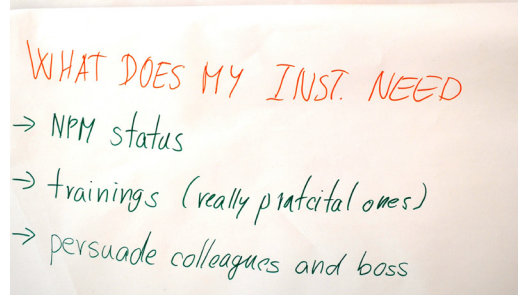 WHAT DOES MY INST. NEED
→ NPM status
→ trainings (really pratcital ones)
→ persuade colleagues and boss